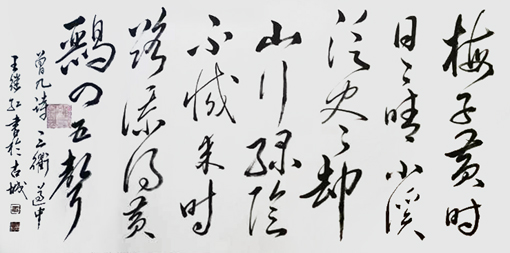 梅子黄时
日日晴小溪
泛尽却
山行绿阴
不减来时
路添得黄
鹂四五声
曾几诗三衢道中
王继红书於古城